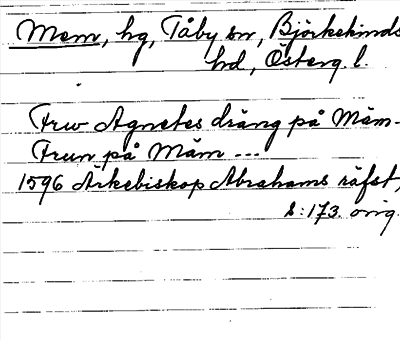 Mem, hg, Tåby sn, Björkekinds
hd, Österg. l.
Frw Agnetes dräng på Mäm.
Frun på Mäm ...
1596 Ärkebiskop Abrahams räfst,
s: 173. orig.